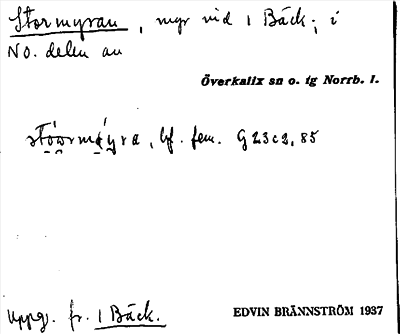 Stormyran, myr vid 1 Bäck; i
NO. delen av
Överkalix sn o. tg Norrb. l.
bf. fem. G 23c2, 85
Uppg. fr. 1 Bäck.
EDVIN BRÄNNSTRÖM 1937